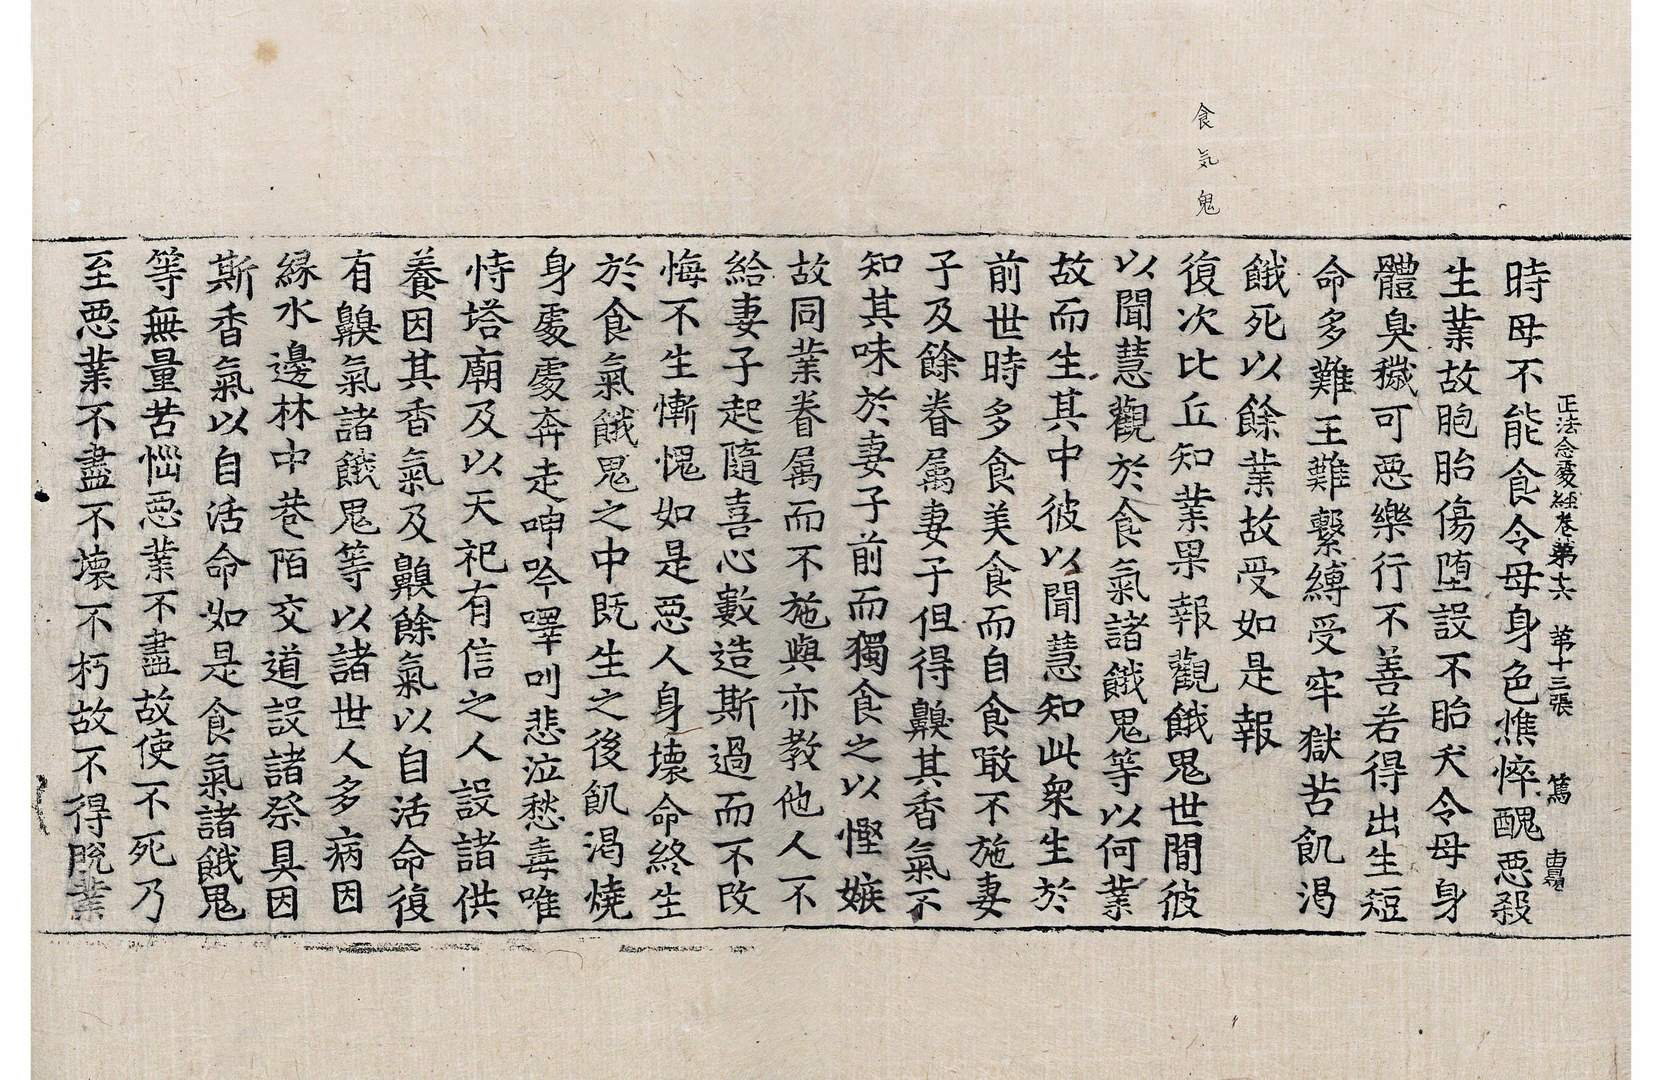 正法念處經卷第十六　第十三張　篤
時母不能食令母身色憔悴醜惡殺
生業故胞胎傷墮設不胎夭令母身
體臭穢可惡樂行不善若得出生短
命多難王難繫縛受牢獄苦飢渴
餓死以餘業故受如是報
食気鬼
復次比丘知業果報觀餓鬼世間彼
以聞慧觀於食氣諸餓鬼等以何業
故而生其中彼以聞慧知此衆生於
前世時多食美食而自食噉不施妻
子及餘眷属妻子但得齅其香氣不
知其味於妻子前而獨食之以慳嫉
故同業眷属而不施與亦教他人不
給妻子起隨喜心數造斯過而不改
悔不生慚愧如是惡人身壞命終生
於食氣餓鬼之中既生之後飢渴燒
身處處奔走呻吟嘷叫悲泣愁毒唯
恃塔廟及以天祀有信之人設諸供
養因其香氣及齅餘氣以自活命復
有齅氣諸餓鬼等以諸世人多病因
緣水邊林中巷陌交道設諸祭具因
斯香氣以自活命如是食氣諸餓鬼
等無量苦惱惡業不盡故使不死乃
至惡業不盡不壞不朽故不得脫業